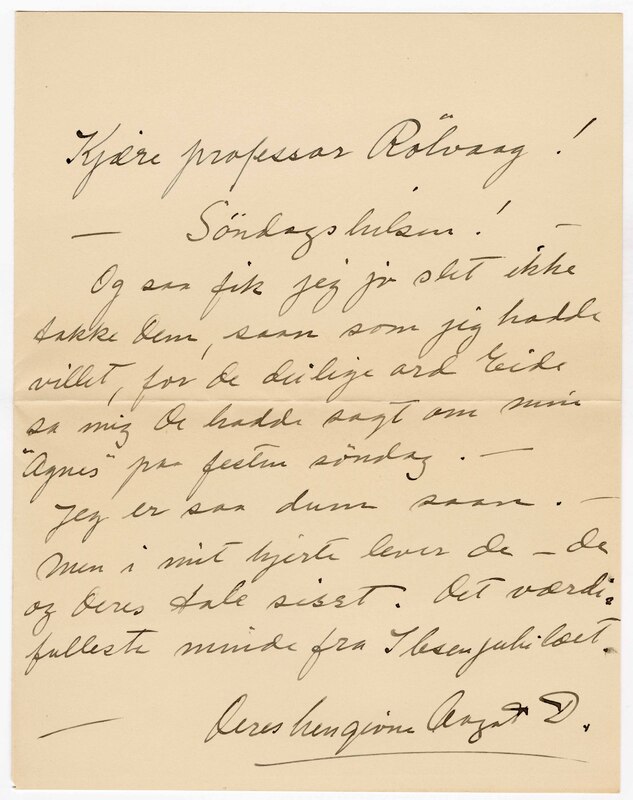 Kjære professor Rölvaag!
— Söndagshilsen! —
Og saa fik jeg jo slet ikke
takke Dem, saan som jeg hadde
villet, for de deilige ord Eide
sa mig De hadde sagt om min
"Agnes" paa festen söndag. —
Jeg er saa dum saan. —
Men i mit hjerte lever de — de
og Deres tale sisst. Det værdi-
fulleste minde fra Ibsenjubilæet.
— Deres hengivne D.